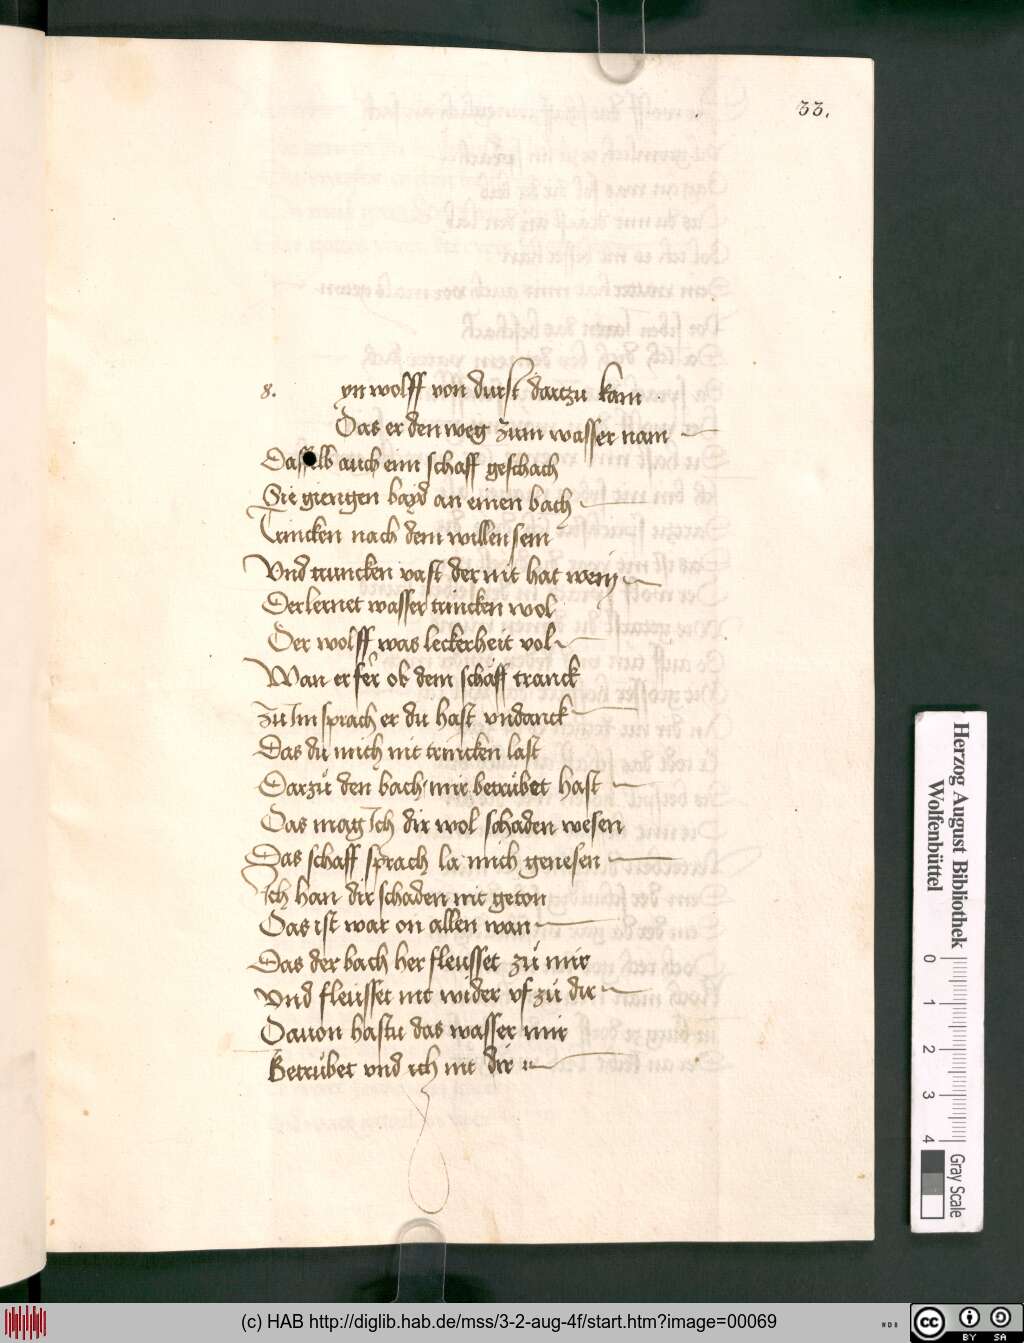 33.
8. yn wolff von durst dartzu kam
Das er den weg zum wasser nam
Das lb auch eim schaff geschach
Sie giengen bayd an einen bach
Trincken nach dem willen sein
Vnd truncken vast der nit hat wein
Der lernet wasser trincken wol
Der wolff was leckerheit vol
Wan er ferr ob dem schaff tranck
Zu Im sprach er du hast vndanck
Das du mich nit trincken last
Darzů den bach mir betrübet hast
Das mag Ich dir wol schaden wesen
Das schaff sprach la mich genesen
Ich han dir schaden nit geton
Das ist war on allen wan
Das der bach her fleusset zů mir
Vnd fleusset nit wider vf zů dir
Dauon hastu das wasser mir
Betrübet vnd ich nit dir
Herzog August Bibliothek
Wolfenbüttel
0 1 2 3 4
Gray Scale
(c) HAB http://diglib.hab.de/mss/3-2-aug-4f/start.htm?image=00069
WDB
cc BY SA